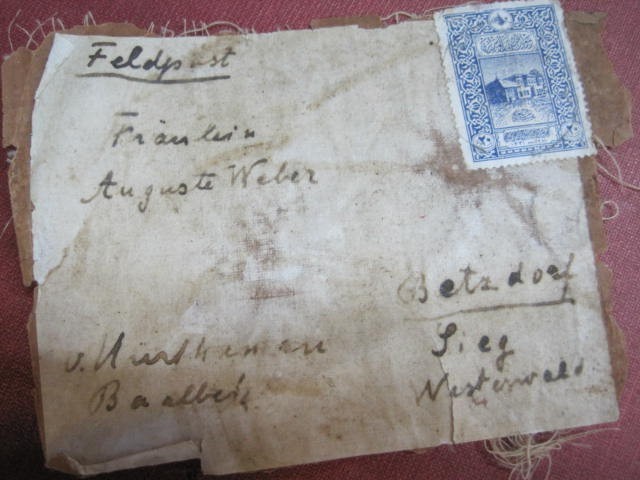 Feldpost
Fräulein
Auguste Weber
Betzdorf
Sieg
Westerwald
v.
Baalbek